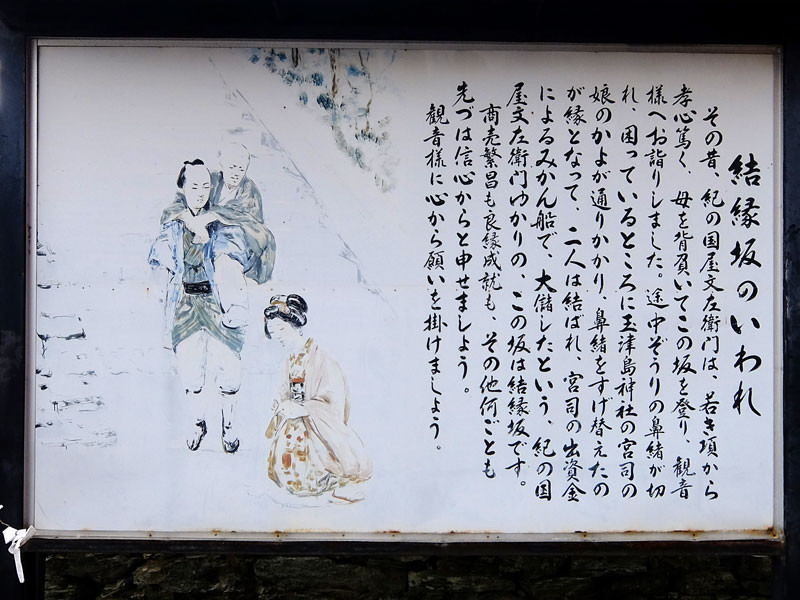 結縁坂のいわれ
その昔、紀の国屋文左衛門は、若き頃から
孝心篤く、母を背負いてこの坂を登り、観音
様へお詣りしました。途中ぞうりの鼻緒が切
れ、困っているところに玉津島神社の宮司の
娘のかよが通りかかり、鼻緒をすげ替えたの
が縁となって、二人は結ばれ、宮司の出資金
によるみかん船で、大儲したという、紀の国
屋文左衛門ゆかりの、この坂は結縁坂です。
商売繁昌も良縁成就も、その他何ごとも
先づは信心からと申せましょう。
観音様に心から願いを掛けましょう。